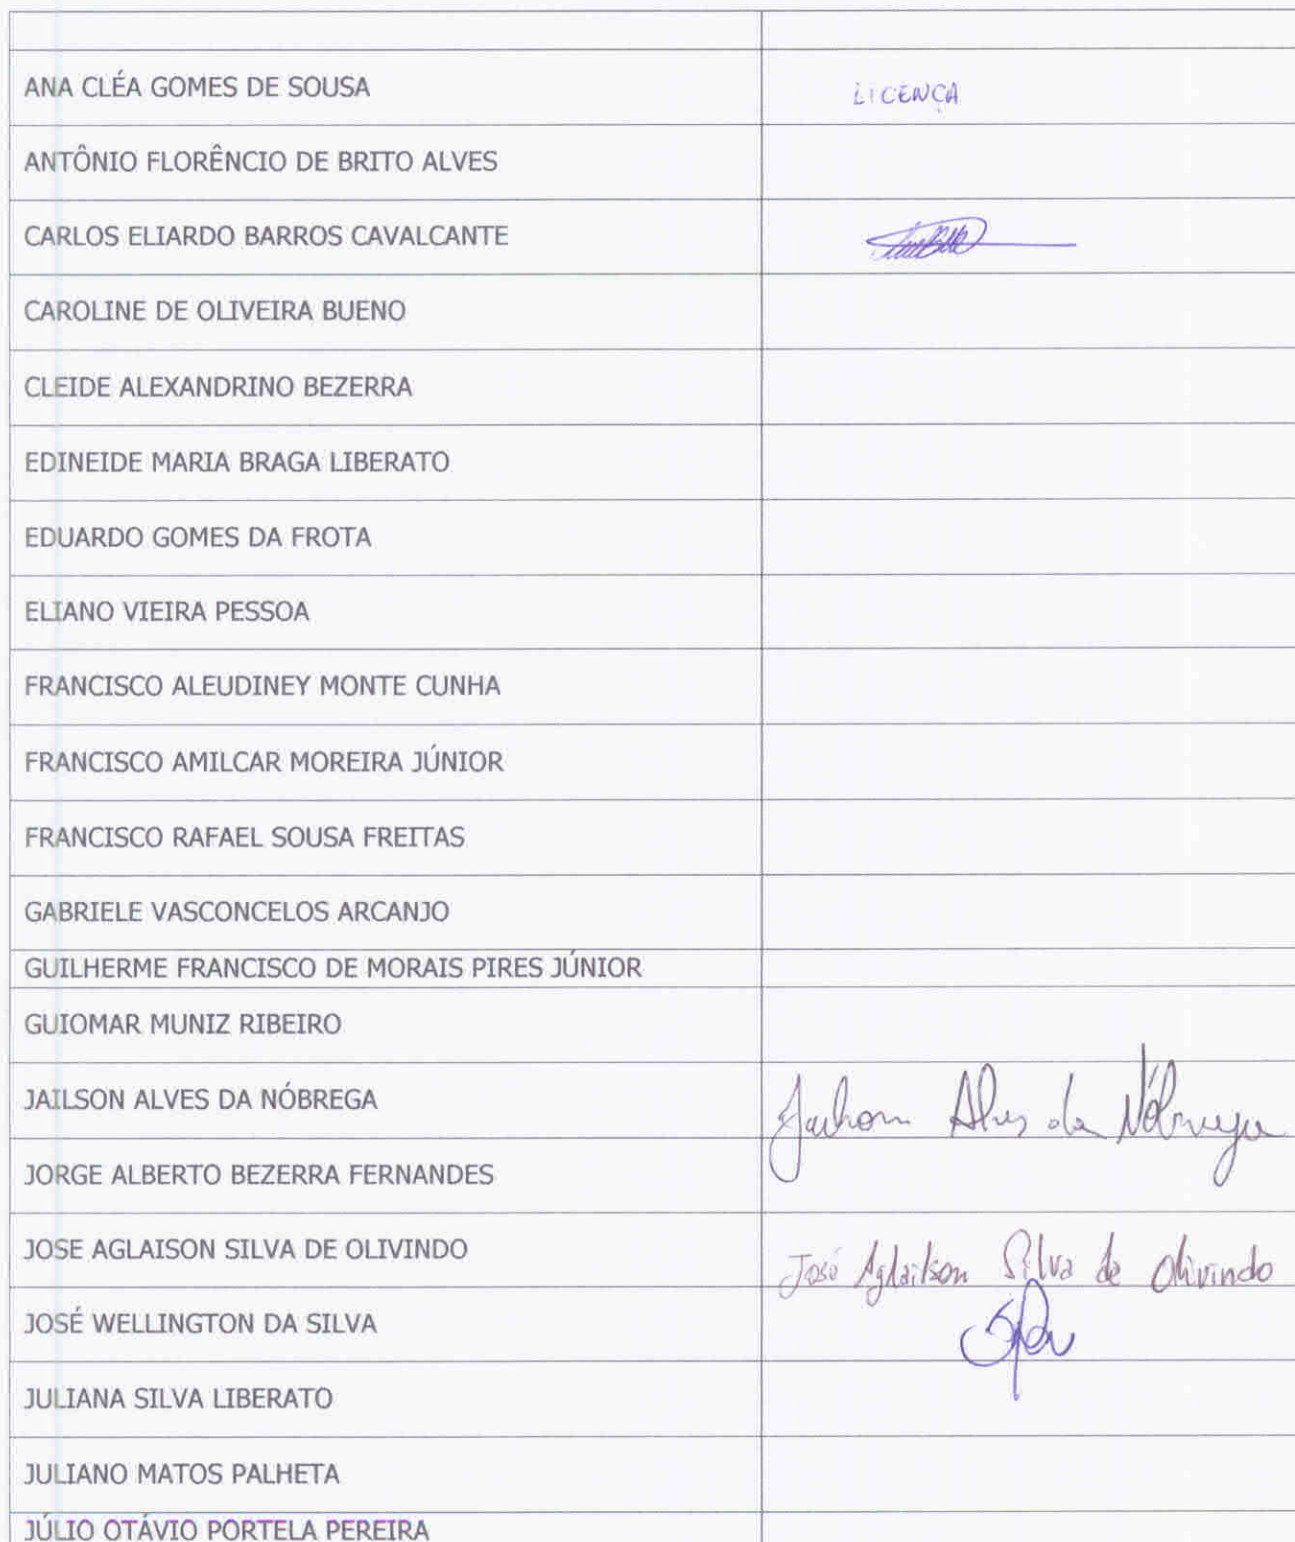 ANA CLÉA GOMES DE SOUSA LICENÇA
ANTÔNIO FLORÊNCIO DE BRITO ALVES
CARLOS ELIARDO BARROS CAVALCANTE
CAROLINE DE OLIVEIRA BUENO
CLEIDE ALEXANDRINO BEZERRA
EDINEIDE MARIA BRAGA LIBERATO
EDUARDO GOMES DA FROTA
ELIANO VIEIRA PESSOA
FRANCISCO ALEUDINEY MONTE CUNHA
FRANCISCO AMILCAR MOREIRA JÚNIOR
FRANCISCO RAFAEL SOUSA FREITAS
GABRIELE VASCONCELOS ARCANJO
GUILHERME FRANCISCO DE MORAIS PIRES JÚNIOR
GUIOMAR MUNIZ RIBEIRO
JAILSON ALVES DA NÓBREGA Jailson Alves da Nóbrega
JORGE ALBERTO BEZERRA FERNANDES
JOSE AGLAISON SILVA DE OLIVINDO José Aglailson Silva de Olivindo
JOSÉ WELLINGTON DA SILVA
JULIANA SILVA LIBERATO
JULIANO MATOS PALHETA
JÚLIO OTÁVIO PORTELA PEREIRA